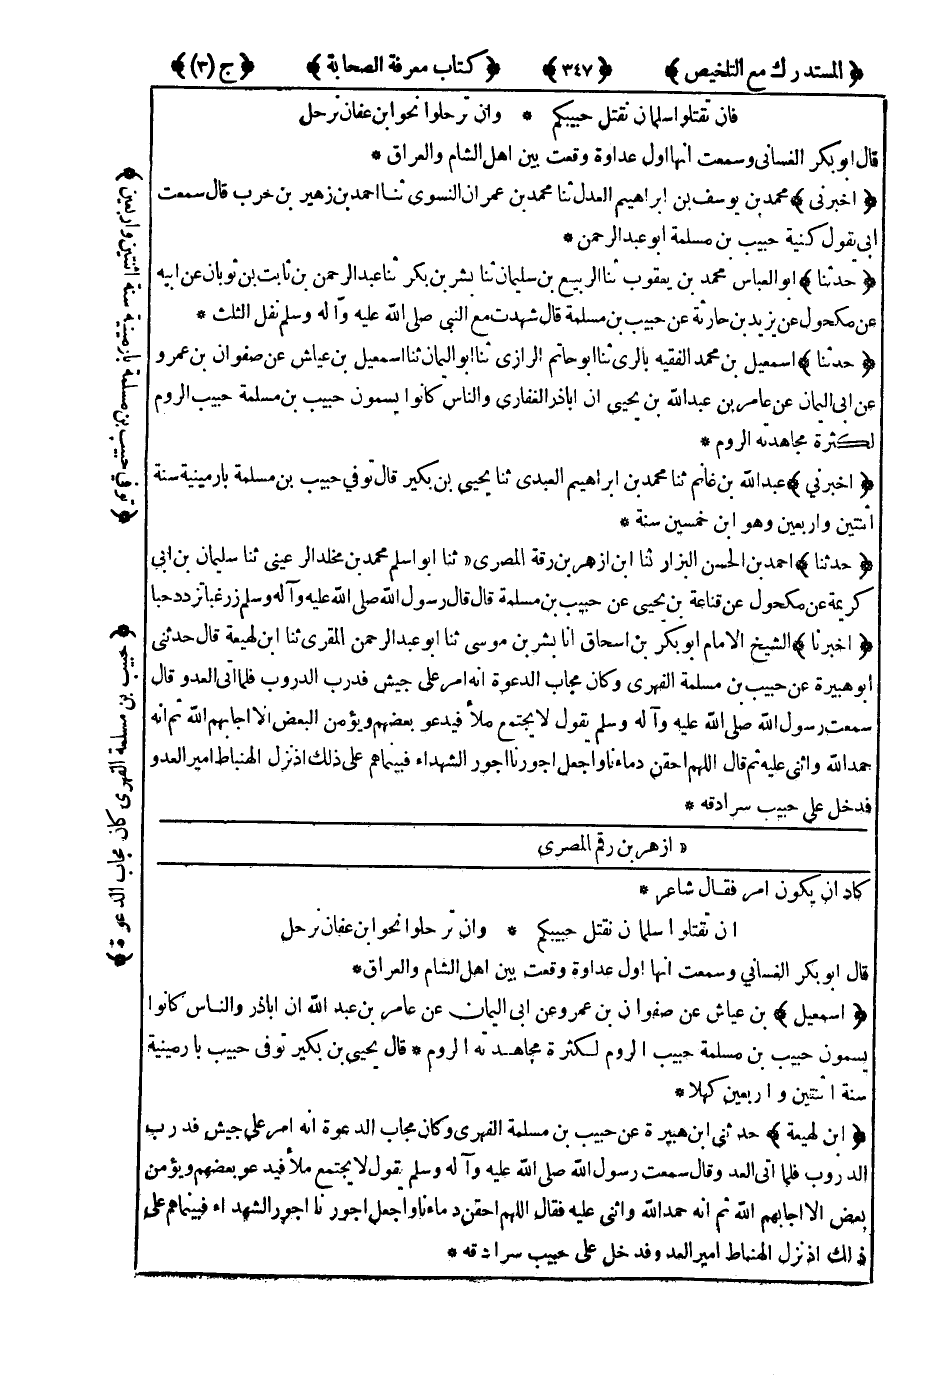 ﴿ المستدرك مع التلخيص ﴾ ﴿ ٣٤٧ ﴾ ﴿ كتاب معرفة الصحابة ﴾ ﴿ ج (٣) ﴾
فان تقتلوا سلمان نقتل حبيبكم * وان ترحلوا نحو ابن عفان نرحل
قال ابو بكر الغسانى وسمعت انها اول عداوة وقعت بين اهل الشام والعراق *
﴿ اخبرنى ﴾ محمد بن يوسف بن ابراهيم العدل ثنا محمد بن عمران النسوى ثنا احمد بن زهير بن حرب قال سمعت
ابى يقول كنية حبيب بن مسلمة ابو عبد الرحمن *
﴿ حدثنا ﴾ ابو العباس محمد بن يعقوب ثنا الربيع بن سليمان ثنا بشر بن بكر ثنا عبد الرحمن بن ثابت بن ثوبان عن ابيه
عن مكحول عن يزيد بن حارثة عن حبيب بن مسلمة قال شهدت مع النبى صلى الله عليه وآله وسلم نفل الثلث *
﴿ حدثنا ﴾ اسمعيل بن محمد الفقيه بالرى ثنا ابو حاتم الرازى ثنا ابو اليمان ثنا اسمعيل بن عياش عن صفوان بن عمرو
عن ابى اليمان عن عامر بن عبد الله بن يحيى ان اباذر الغفارى والناس كانوا يسمون حبيب بن مسلمة حبيب الروم
لكثرة مجاهدته الروم *
﴿ اخبرني ﴾ عبد الله بن غانم ثنا محمد بن ابراهيم العبدى ثنا يحيى بن بكير قال توفي حبيب بن مسلمة بارمينية سنة
اثنتين واربعين وهو ابن خمسين سنة *
﴿ حدثنا ﴾ احمد بن الحسن البزار ثنا ابن ازهر بن رقة المصرى « ثنا ابو اسلم محمد بن مخلد الرعينى ثنا سليمان بن ابى
كريمة عن مكحول عن قناعة بن يحيى عن حبيب بن مسلمة قال قال رسول الله صلى الله عليه وآله وسلم زر غبا تزدد حبا
﴿ اخبرنا ﴾ الشيخ الامام ابو بكر بن اسحاق انا بشر بن موسى ثنا ابو عبد الرحمن المقرى ثنا ابن لهيعة قال حدثنى
ابو هبيرة عن حبيب بن مسلمة الفهرى وكان مجاب الدعوة انه امر على جيش فدرب الدروب فلما اتى العدو قال
سمعت رسول الله صلى الله عليه وآله وسلم يقول لا يجتمع ملأ فيدعو بعضهم ويؤمن البعض الا اجابهم الله ثم انه
حمد الله واثنى عليه ثم قال اللهم احقن دماءنا واجعل اجورنا اجور الشهداء فبينما هم على ذلك اذ نزل الهنباط امير العدو
فدخل على حبيب سرادقه *
« ازهر بن رقم المصرى
كاد ان يكون امر فقال شاعر *
ان تقتلوا سلمان نقتل حبيبكم * وان ترحلوا نحو ابن عفان نرحل
قال ابو بكر الغساني وسمعت انها اول عداوة وقعت بين اهل الشام والعراق *
﴿ اسمعيل ﴾ بن عياش عن صفوان بن عمرو عن ابى اليمان عن عامر بن عبد الله ان اباذر والناس كانوا
يسمون حبيب بن مسلمة حبيب الروم لكثرة مجاهدته الروم * قال يحيى بن بكير توفى حبيب بارمينية
سنة اثنتين و اربعين كهلا *
﴿ ابن لهيعة ﴾ حدثنى ابن هبيرة عن حبيب بن مسلمة الفهرى وكان مجاب الدعوة انه امر على جيش فدرب
الدروب فلما اتى العدو قال سمعت رسول الله صلى الله عليه وآله وسلم يقول لا يجتمع ملأ فيدعو بعضهم ويؤمن
بعض الا اجابهم الله ثم انه حمد الله واثنى عليه فقال اللهم احقن دماءنا واجعل اجورنا اجور الشهداء فبينما هم على
ذلك اذ نزل الهنباط امير العدو فدخل على حبيب سرادقه *
﴿ توفي حبيب بن مسلمة بارمينية سنة اثنتين واربعين ﴾
﴿ حبيب بن مسلمة الفهرى كان مجاب الدعوة ﴾